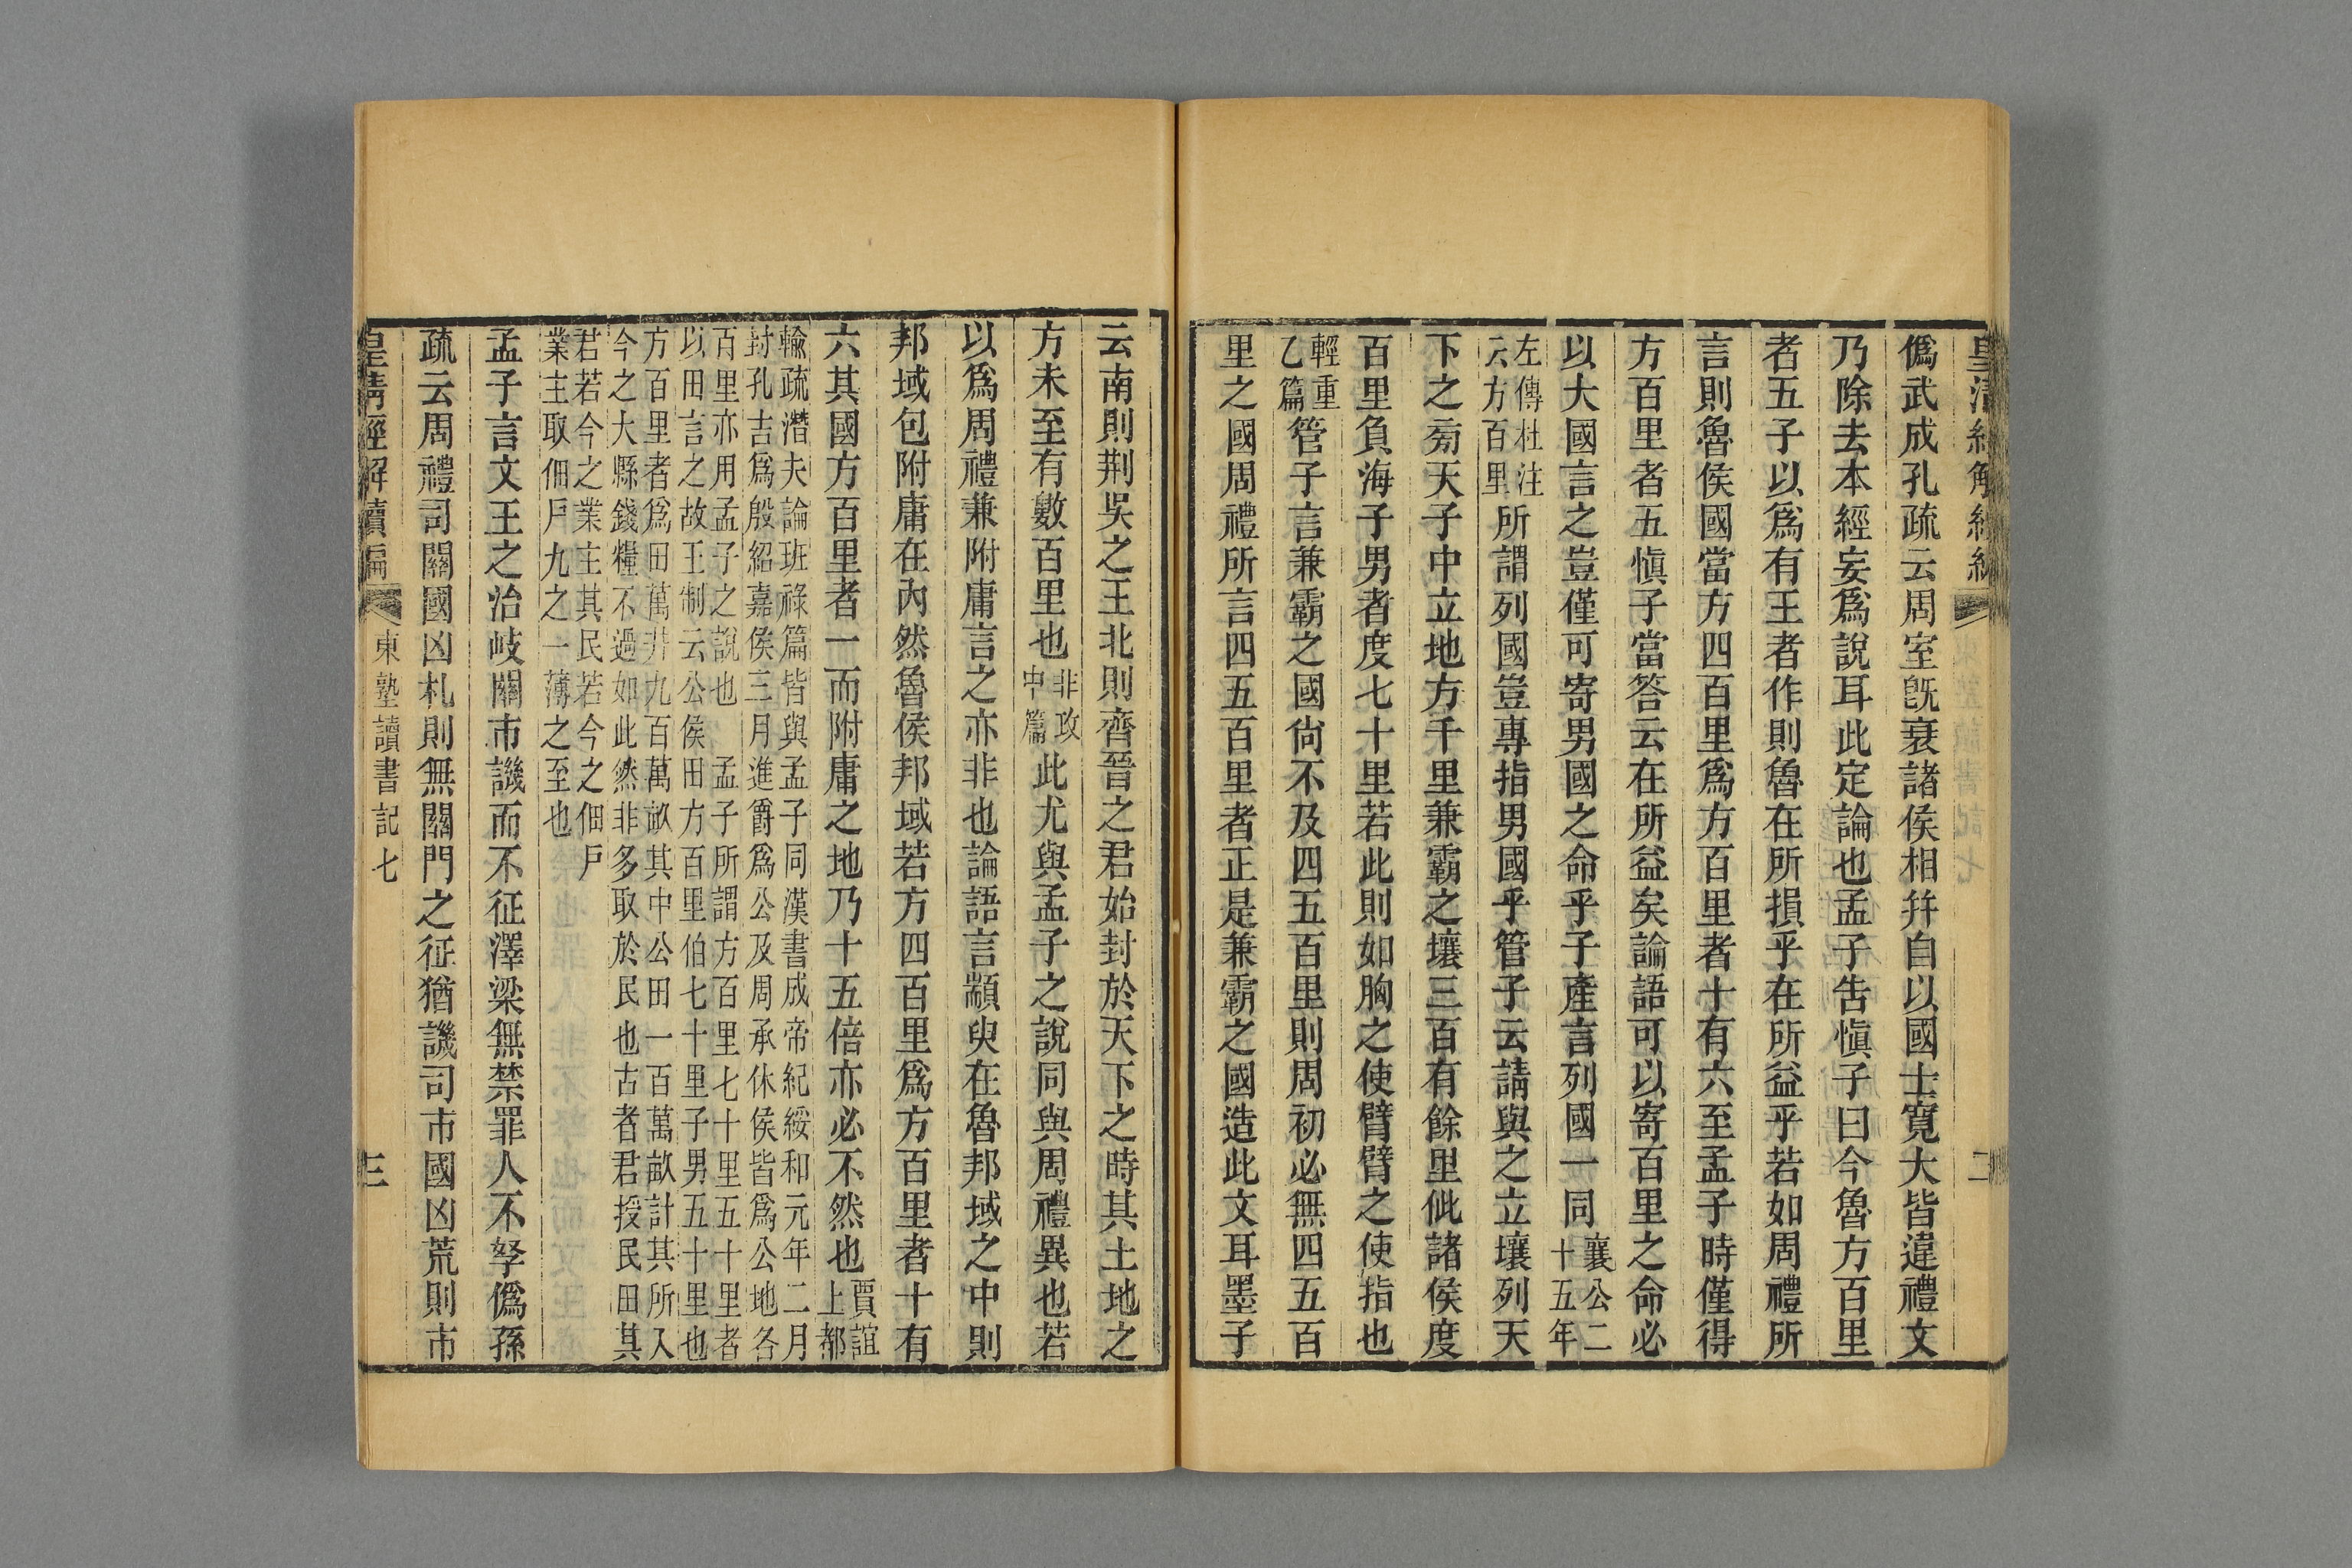 皇清經解續編
二
僞武成孔疏云周室旣衰諸侯相幷自以國土寬大皆違禮文
乃除去本經妄爲說耳此定論也孟子告愼子曰今魯方百里
者五子以爲有王者作則魯在所損乎在所益乎若如周禮所
言則魯侯國當方四百里爲方百里者十有六至孟子時僅得
方百里者五愼子當答云在所益矣論語可以寄百里之命必
以大國言之豈僅可寄男國之命乎子產言列國一同襄公二十五年
左傳杜注云方百里所謂列國豈專指男國乎管子云請與之立壤列天
下之旁天子中立地方千里兼霸之壤三百有餘里佌諸侯度
百里負海子男者度七十里若此則如胸之使臂臂之使指也
輕重乙篇管子言兼霸之國尙不及四五百里則周初必無四五百
里之國周禮所言四五百里者正是兼霸之國造此文耳墨子
云南則荆吳之王北則齊晉之君始封於天下之時其土地之
方未至有數百里也非攻中篇此尤與孟子之說同與周禮異也若
以爲周禮兼附庸言之亦非也論語言顓臾在魯邦域之中則
邦域包附庸在內然魯侯邦域若方四百里爲方百里者十有
六其國方百里者一而附庸之地乃十五倍亦必不然也賈誼上都
輸疏潛夫論班祿篇皆與孟子同漢書成帝紀綏和元年二月
封孔吉爲殷紹嘉侯三月進爵爲公及周承休侯皆爲公地各
百里亦用孟子之說也　孟子所謂方百里七十里五十里者
以田言之故王制云公侯田方百里伯七十里子男五十里也
方百里者爲田萬井九百萬畝其中公田一百萬畝計其所入
今之大縣錢糧不過如此然非多取於民也古者君授民田其
君若今之業主其民若今之佃戶
業主取佃戶九之一薄之至也
孟子言文王之治岐關市譏而不征澤梁無禁罪人不孥僞孫
疏云周禮司關國凶札則無關門之征猶譏司市國凶荒則市
皇淸經解續編
東塾讀書記七
三